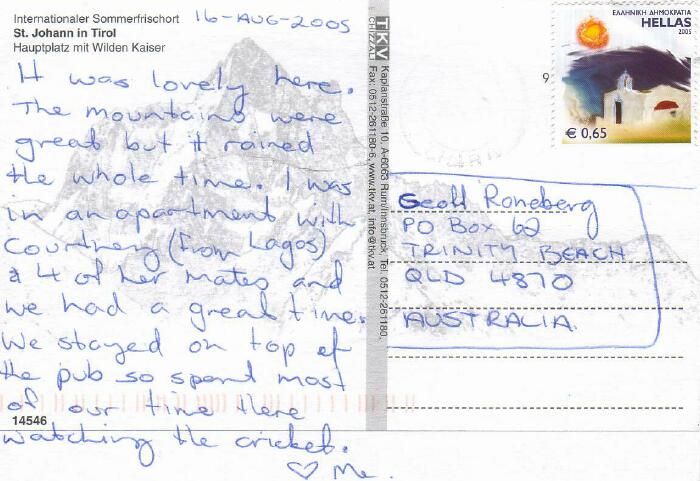 Internationaler Sommerfrischort
St. Johann in Tirol
Hauptplatz mit Wilden Kaiser
16-AUG-2005
It was lovely here.
The mountains were
great but it rained
the whole time. I was
in an apartment with
Courtney (from Lagos)
& 4 of her mates and
we had a great time.
We stayed on top of
the pub so spent most
of our time there
watching the cricket.
♡ Me.
14546
TKV
CHIZZALI
Kaplanstraße 10, A-6063 Rum/Innsbruck, Tel. 0512-261180,
Fax: 0512-261180-6, www.tkv.at, info@tkv.at
ΕΛΛΗΝΙΚΗ ΔΗΜΟΚΡΑΤΙΑ
HELLAS
2005
€ 0,65
9
Geoff Roneberg
PO BOX 62
TRINITY BEACH
QLD 4870
AUSTRALIA.